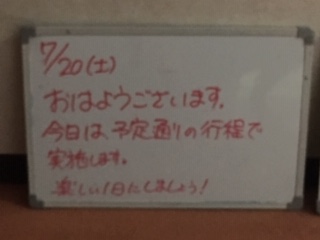 7/20(土)
おはようございます。
今日は、予定通りの行程で
実施します。
楽しい1日にしましょう!